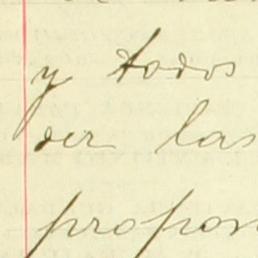 y todos
der las
propon